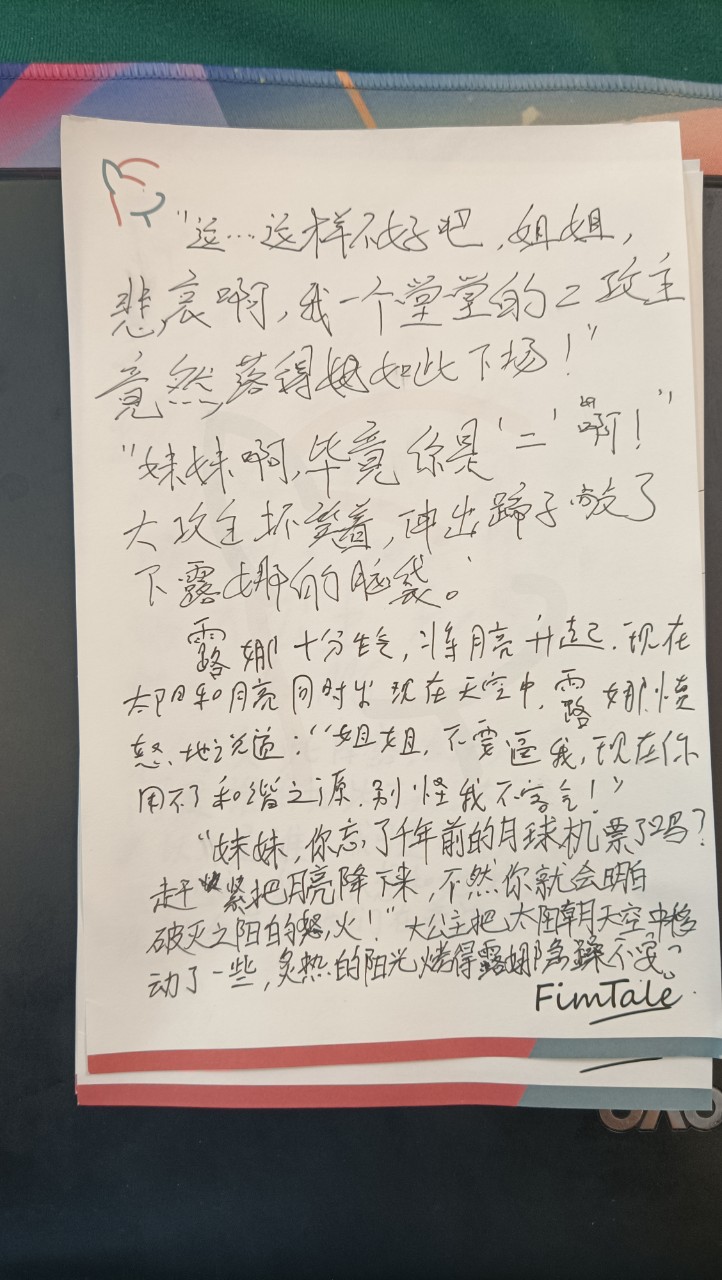 "这…这样不好吧,姐姐,
悲哀啊,我一个堂堂的二攻主
竟然落得如此下场!"
"妹妹啊,毕竟你是'二'啊!"
大攻主坏笑着,伸出蹄子敲了
下露娜的脑袋。
露娜十分生气,将月亮升起.现在
太阳和月亮同时出现在天空中,露娜愤
怒地说道:"姐姐,不要逼我,现在你
用不了和谐之源,别怪我不客气!"
"妹妹,你忘了千年前的月球机票了吗?
赶紧把月亮降下来,不然你就会明白
破灭之阳的怒火!"大公主把太阳朝天空中移
动了一些,炙热的阳光烤得露娜急躁不安。
FimTale